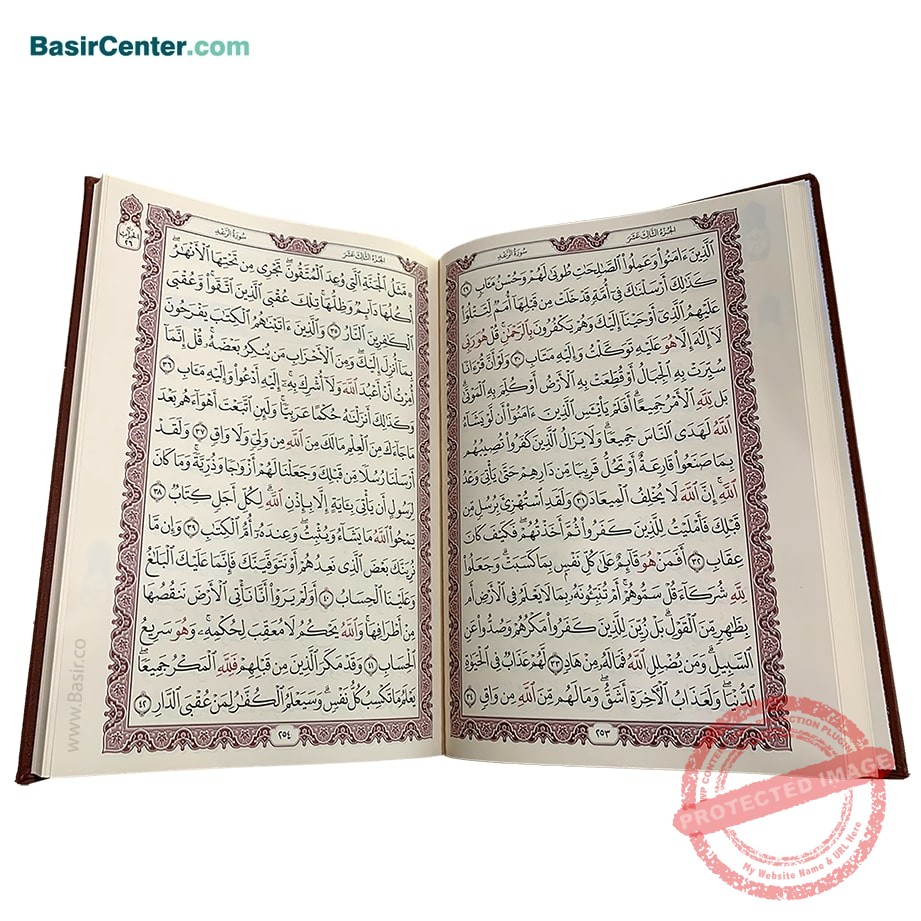 BasirCenter.com
سُورَةُ الرَّعْدِ
الجُزْءُ الثَّالِثَ عَشَرَ
الَّذِينَ ءَامَنُوا۟ وَعَمِلُوا۟ الصَّـٰلِحَـٰتِ طُوبَىٰ لَهُمْ وَحُسْنُ مَـَٔابٍ ٢٩
كَذَٰلِكَ أَرْسَلْنَـٰكَ فِىٓ أُمَّةٍ قَدْ خَلَتْ مِن قَبْلِهَآ أُمَمٌ لِّتَتْلُوَا۟
عَلَيْهِمُ الَّذِىٓ أَوْحَيْنَآ إِلَيْكَ وَهُمْ يَكْفُرُونَ بِالرَّحْمَـٰنِ ۚ قُلْ هُوَ رَبِّى
لَآ إِلَـٰهَ إِلَّا هُوَ عَلَيْهِ تَوَكَّلْتُ وَإِلَيْهِ مَتَابِ ٣٠ وَلَوْ أَنَّ قُرْءَانًا
سُيِّرَتْ بِهِ الْجِبَالُ أَوْ قُطِّعَتْ بِهِ الْأَرْضُ أَوْ كُلِّمَ بِهِ الْمَوْتَىٰ ۗ
بَل لِّلَّهِ الْأَمْرُ جَمِيعًا ۗ أَفَلَمْ يَا۟يْـَٔسِ الَّذِينَ ءَامَنُوٓا۟ أَن لَّوْ يَشَآءُ
اللَّهُ لَهَدَى النَّاسَ جَمِيعًا ۗ وَلَا يَزَالُ الَّذِينَ كَفَرُوا۟ تُصِيبُهُم
بِمَا صَنَعُوا۟ قَارِعَةٌ أَوْ تَحُلُّ قَرِيبًا مِّن دَارِهِمْ حَتَّىٰ يَأْتِىَ وَعْدُ
اللَّهِ ۚ إِنَّ اللَّهَ لَا يُخْلِفُ الْمِيعَادَ ٣١ وَلَقَدِ اسْتُهْزِئَ بِرُسُلٍ مِّن
قَبْلِكَ فَأَمْلَيْتُ لِلَّذِينَ كَفَرُوا۟ ثُمَّ أَخَذْتُهُمْ ۖ فَكَيْفَ كَانَ
عِقَابِ ٣٢ أَفَمَنْ هُوَ قَآئِمٌ عَلَىٰ كُلِّ نَفْسٍۭ بِمَا كَسَبَتْ ۗ وَجَعَلُوا۟
لِلَّهِ شُرَكَآءَ قُلْ سَمُّوهُمْ ۚ أَمْ تُنَبِّـُٔونَهُۥ بِمَا لَا يَعْلَمُ فِى الْأَرْضِ أَم
بِظَـٰهِرٍ مِّنَ الْقَوْلِ ۗ بَلْ زُيِّنَ لِلَّذِينَ كَفَرُوا۟ مَكْرُهُمْ وَصُدُّوا۟ عَنِ
السَّبِيلِ ۗ وَمَن يُضْلِلِ اللَّهُ فَمَا لَهُۥ مِنْ هَادٍ ٣٣ لَّهُمْ عَذَابٌ فِى الْحَيَوٰةِ
الدُّنْيَا ۖ وَلَعَذَابُ الْـَٔاخِرَةِ أَشَقُّ ۖ وَمَا لَهُم مِّنَ اللَّهِ مِن وَاقٍ ٣٤
٢٥٣
سُورَةُ الرَّعْدِ
الجُزْءُ الثَّالِثَ عَشَرَ
الحزب
٢٦
۞ مَّثَلُ الْجَنَّةِ الَّتِى وُعِدَ الْمُتَّقُونَ ۖ تَجْرِى مِن تَحْتِهَا الْأَنْهَـٰرُ ۖ
أُكُلُهَا دَآئِمٌ وَظِلُّهَا ۚ تِلْكَ عُقْبَى الَّذِينَ اتَّقَوا۟ ۖ وَّعُقْبَى
الْكَـٰفِرِينَ النَّارُ ٣٥ وَالَّذِينَ ءَاتَيْنَـٰهُمُ الْكِتَـٰبَ يَفْرَحُونَ
بِمَآ أُنزِلَ إِلَيْكَ ۖ وَمِنَ الْأَحْزَابِ مَن يُنكِرُ بَعْضَهُۥ ۚ قُلْ إِنَّمَآ
أُمِرْتُ أَنْ أَعْبُدَ اللَّهَ وَلَآ أُشْرِكَ بِهِۦٓ ۚ إِلَيْهِ أَدْعُوا۟ وَإِلَيْهِ مَـَٔابِ ٣٦
وَكَذَٰلِكَ أَنزَلْنَـٰهُ حُكْمًا عَرَبِيًّا ۚ وَلَئِنِ اتَّبَعْتَ أَهْوَآءَهُم بَعْدَ
مَا جَآءَكَ مِنَ الْعِلْمِ مَا لَكَ مِنَ اللَّهِ مِن وَلِىٍّ وَلَا وَاقٍ ٣٧ وَلَقَدْ
أَرْسَلْنَا رُسُلًا مِّن قَبْلِكَ وَجَعَلْنَا لَهُمْ أَزْوَٰجًا وَذُرِّيَّةً ۚ وَمَا كَانَ
لِرَسُولٍ أَن يَأْتِىَ بِـَٔايَةٍ إِلَّا بِإِذْنِ اللَّهِ ۗ لِكُلِّ أَجَلٍ كِتَابٌ ٣٨
يَمْحُوا۟ اللَّهُ مَا يَشَآءُ وَيُثْبِتُ ۖ وَعِندَهُۥٓ أُمُّ الْكِتَـٰبِ ٣٩ وَإِن مَّا
نُرِيَنَّكَ بَعْضَ الَّذِى نَعِدُهُمْ أَوْ نَتَوَفَّيَنَّكَ فَإِنَّمَا عَلَيْكَ الْبَلَـٰغُ
وَعَلَيْنَا الْحِسَابُ ٤٠ أَوَلَمْ يَرَوْا۟ أَنَّا نَأْتِى الْأَرْضَ نَنقُصُهَا
مِنْ أَطْرَافِهَا ۚ وَاللَّهُ يَحْكُمُ لَا مُعَقِّبَ لِحُكْمِهِۦ ۚ وَهُوَ سَرِيعُ
الْحِسَابِ ٤١ وَقَدْ مَكَرَ الَّذِينَ مِن قَبْلِهِمْ فَلِلَّهِ الْمَكْرُ جَمِيعًا ۖ
يَعْلَمُ مَا تَكْسِبُ كُلُّ نَفْسٍ ۗ وَسَيَعْلَمُ الْكُفَّـٰرُ لِمَنْ عُقْبَى الدَّارِ ٤٢
٢٥٤
www.Basir.co
WP CONTENT PROTECTION PLUGIN
PROTECTED IMAGE
My Website Name & URL Here